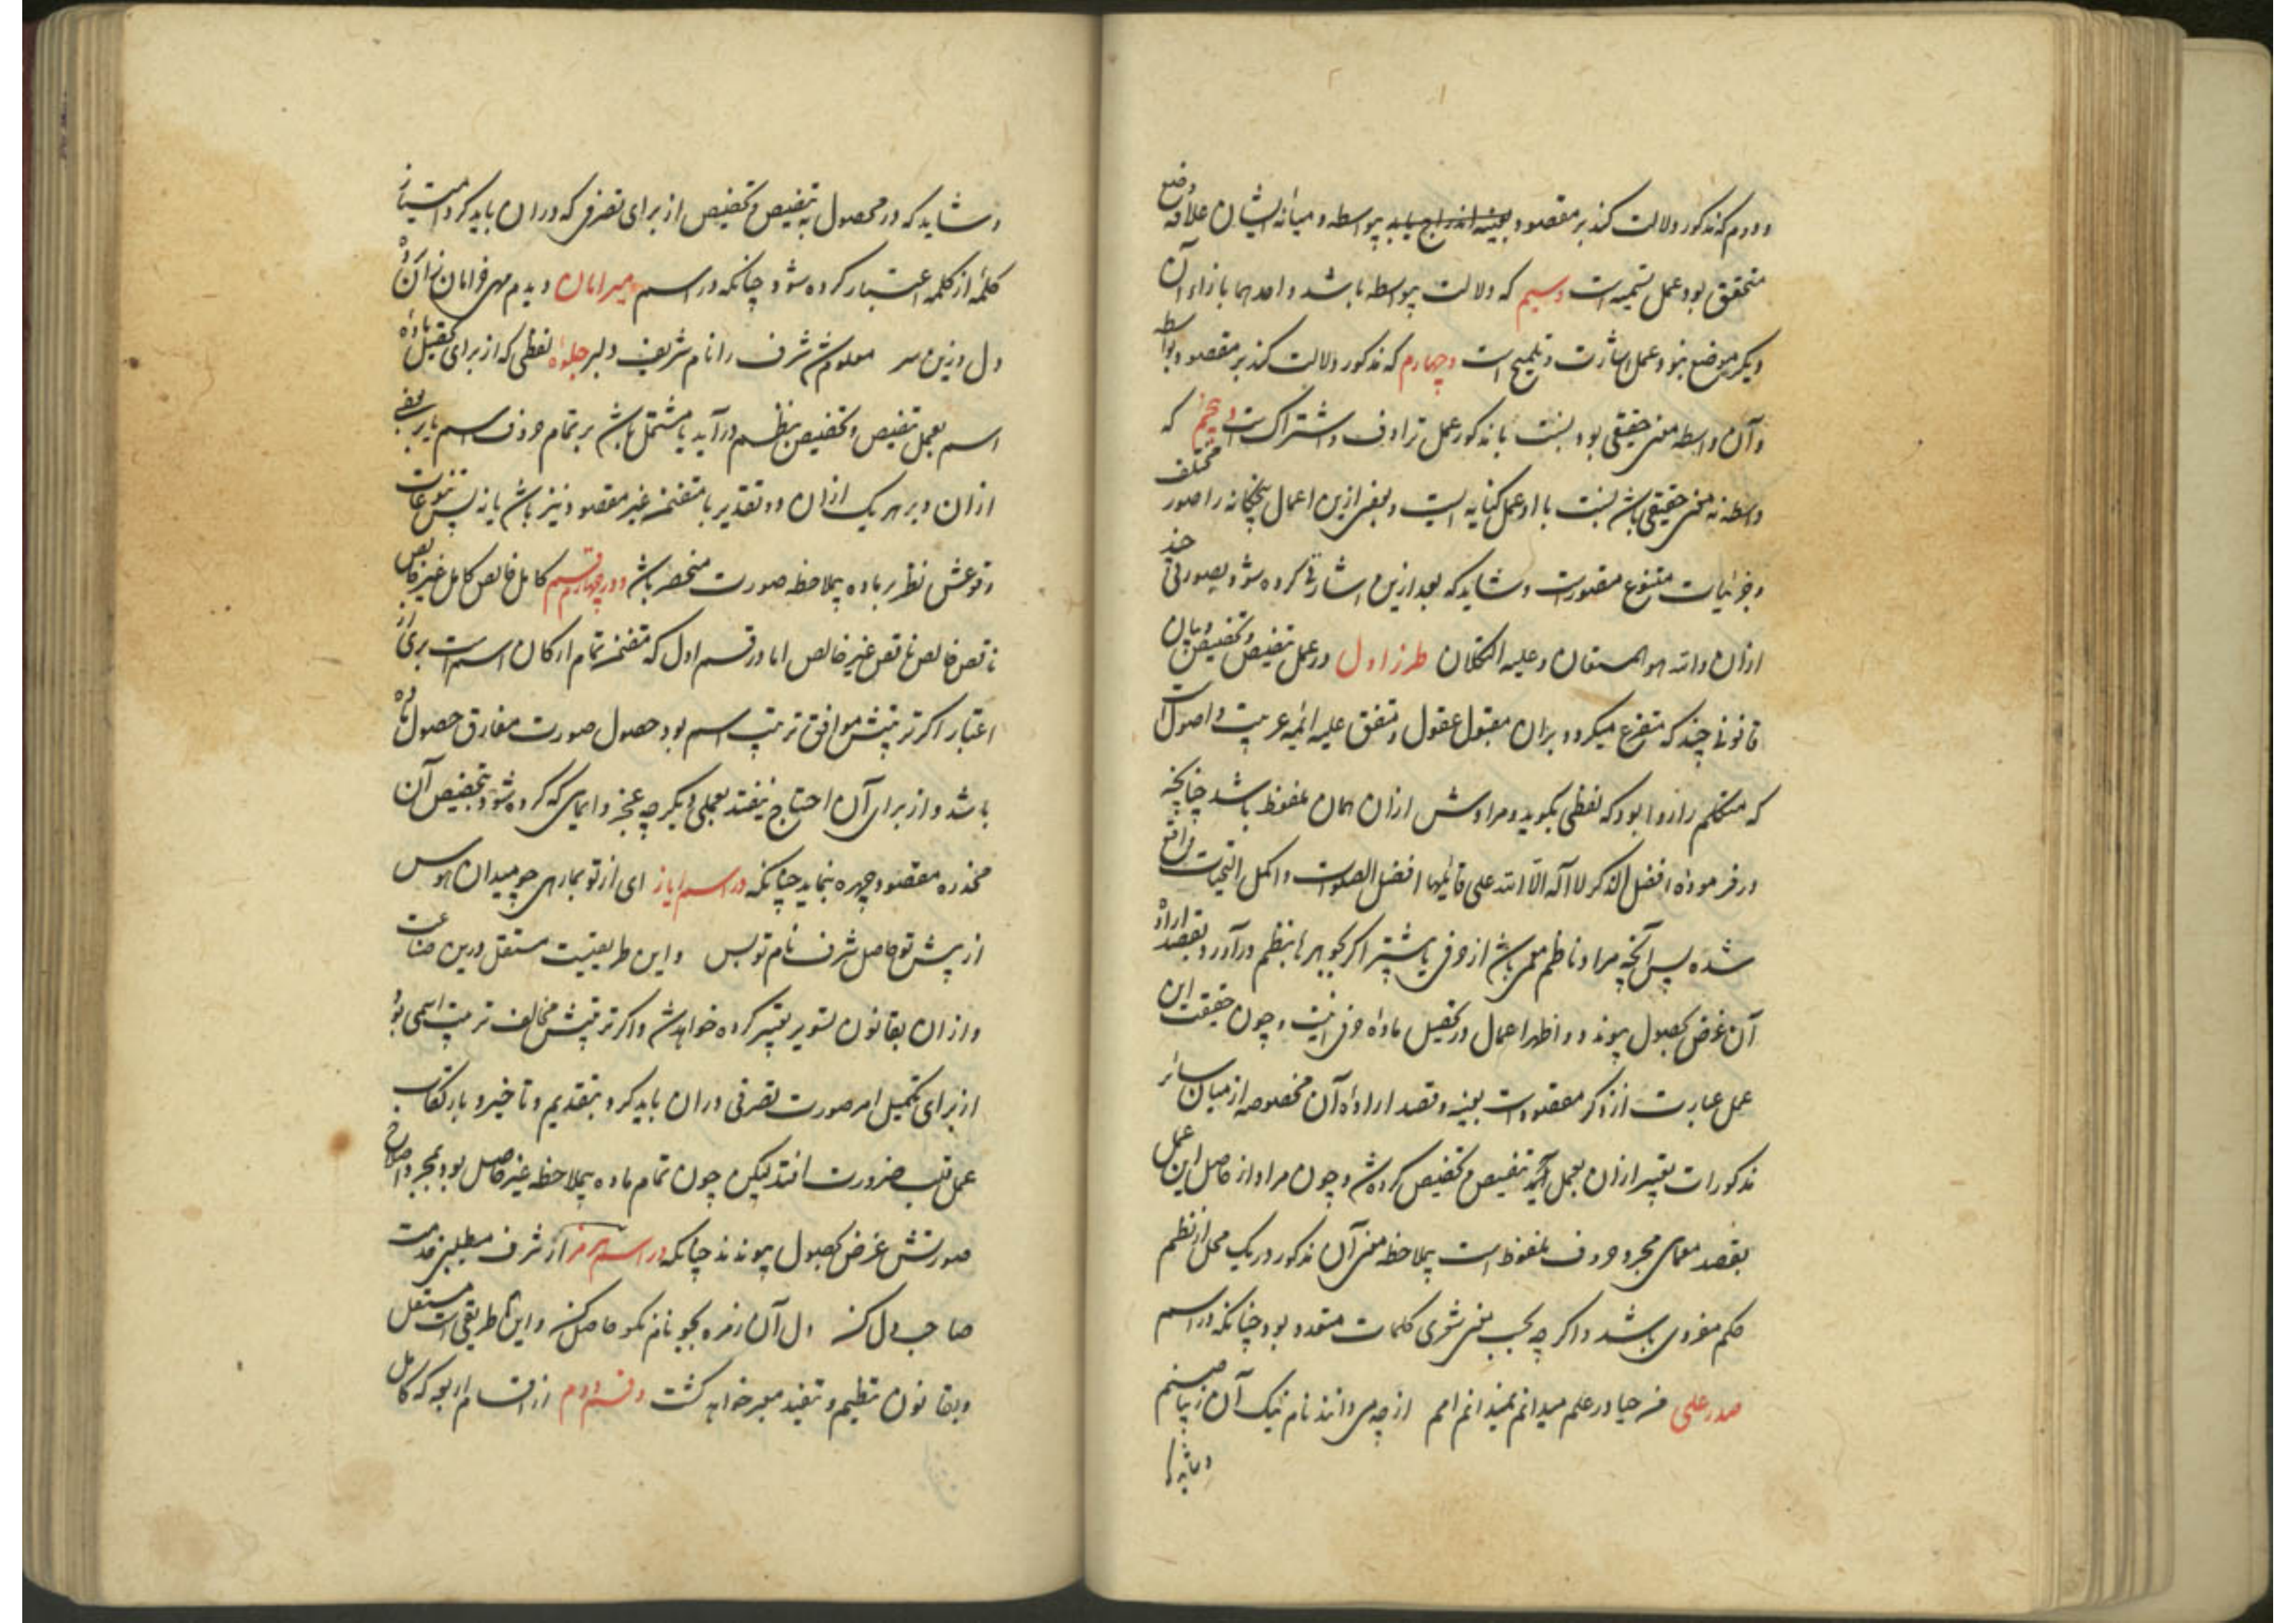 ودوم که مذکور دلالت کند بر مقصود بعینه اندراج یابد بواسطه و میانه ایشان علاقه وضع
متحقق بود عمل تسمیه است وسیم که دلالت بواسطه باشد واحدهما بازاء آن
دیگر موضوع نبود عمل اشارت و تلمیح است وچهارم که مذکور دلالت کند بر مقصود بواسطه
وآن واسطه معنی حقیقی بود نسبت با مذکور عمل ترادف و اشتراک است وپنجم که
واسطه نه معنی حقیقی باشد نسبت با او عمل کنایه است وبعضی ازین اعمال پنجگانه را صور مختلف
وجزئیات متنوع متصورست و شاید که بعد ازین اشارتی کرده شود بصورتی چند
ازان والله هو المستعان وعلیه التکلان طرز اول در عمل تنصیص و تخصیص وبیان
قانونی چند که متفرع میگردد بران مقبول عقول و متفق علیه ائمه عربیت و اصول است
که متکلم را روا بود که لفظی بگوید و مرادش ازان همان ملفوظ باشد چنانچه
در فرموده افضل الذکر لا اله الا الله علی قائلها افضل الصلوات و اکمل التحیات واقع
شده پس آنچه مراد ناظم معمی باشد از حرفی یا بیشتر اگر بجوهرها بنظم درآورد و بقصد اراده
آن غرض بحصول پیوندد و اظهر اعمال در تحصیل ماده حرفی اینست و چون حقیقت این
عمل عبارت از ذکر مقصودست بعینه و قصد اراده آن مخصوصه از میان سائر
مذکورات تعبیر ازان بعمل تنصیص و تخصیص کرده شد و چون مراد از حاصل این عمل
بقصد معمای مجرد حروف ملفوظ است بملاحظه معنی آن مذکور در یک محل از نظم
حکم مفردی باشد واگر چه بحسب معنی شعری کلمات متعدد بود چنانکه در اسم
صدر علی حیا در علم میدانم نمیدانم امم از چه می دانند نام نیک آن زیبا صنم
وشاید که در محصول به تنصیص و تخصیص از برای تصرفی که دران باید کرد امتیاز
کلمه از کلمه اعتبار کرده شود چنانکه در اسم میر امان دیدم مهی خرامان زان
دل وزین سر معلوم شد شرف را نام شریف دلبر جلوه لفظی که از برای تحصیل ماده
اسم بعمل تنصیص و تخصیص بنظم درآید یا مشتمل باشد بر تمام حروف اسم یا بر بعضی
ازان وبر هر یک ازان دو تقدیر یا متضمن غیر مقصود نیز باشد یا نه پس تنوعات
وقوعش نظر بر ماده بملاحظه صورت منحصر باشد در چهار قسم کامل خالص کامل غیر خالص
ناقص خالص ناقص غیر خالص اما در قسم اول که متضمن تمام ارکان اسم است بری از
اعتبار اگر ترتیبش موافق ترتیب اسم بود حصول صورت مقارن حصول ماده
باشد و از برای آن احتیاج نیفتد بعملی دیگر چه بمجرد ایمای که کرده شود بتخصیص آن
مخدره مقصود چهره بنماید چنانکه در اسم ایاز ای از تو بهار هر چو میدان هوس
از پیش تو حاصل شرف نام تو بس واین طریقیست مستقل درین صناعت
وازان بقانون تعبیر کرده خواهد شد واگر ترتیبش مخالف ترتیب اسمی بود
از برای تکمیل امر صورت تصرفی دران باید کرد بتقدیم و تاخیر و بارتکاب
عمل قلب ضرورت افتد لیکن چون تمام ماده بملاحظه غیر حاصل بود بمجرد اصلاح
صورتش غرض بحصول پیوندد چنانکه در اسم هرمز از شرف مطلبی خدمت
صاحب دل کن دل آن زمره بجو نام نکو حاصل کن واین طریقی است مستقل
وبقانون تنظیم و تنضید معبر خواهد گشت وقسم دوم از اقسام اربعه که کامل